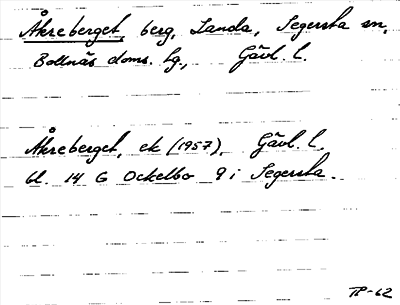 Åkreberget, berg, Landa, Segersta sn,
Bollnäs doms. hg., Gävl. l.
Åkreberget, ek (1957), Gävl. l.
bl. 14 G Ockelbo 9 i Segersta.
TP-62